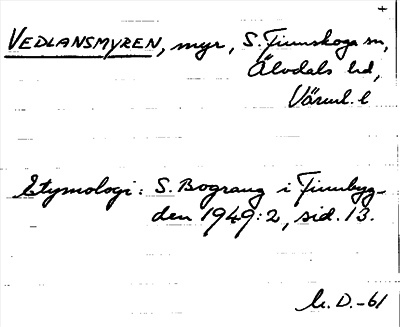 +
VEDLANSMYREN, myr, S. Finnskoga sn,
Älvdals hd,
Värml. l
Etymologi: S. Bograng i Finnbyg-
den 1949:2, sid. 13.
M. D. -61